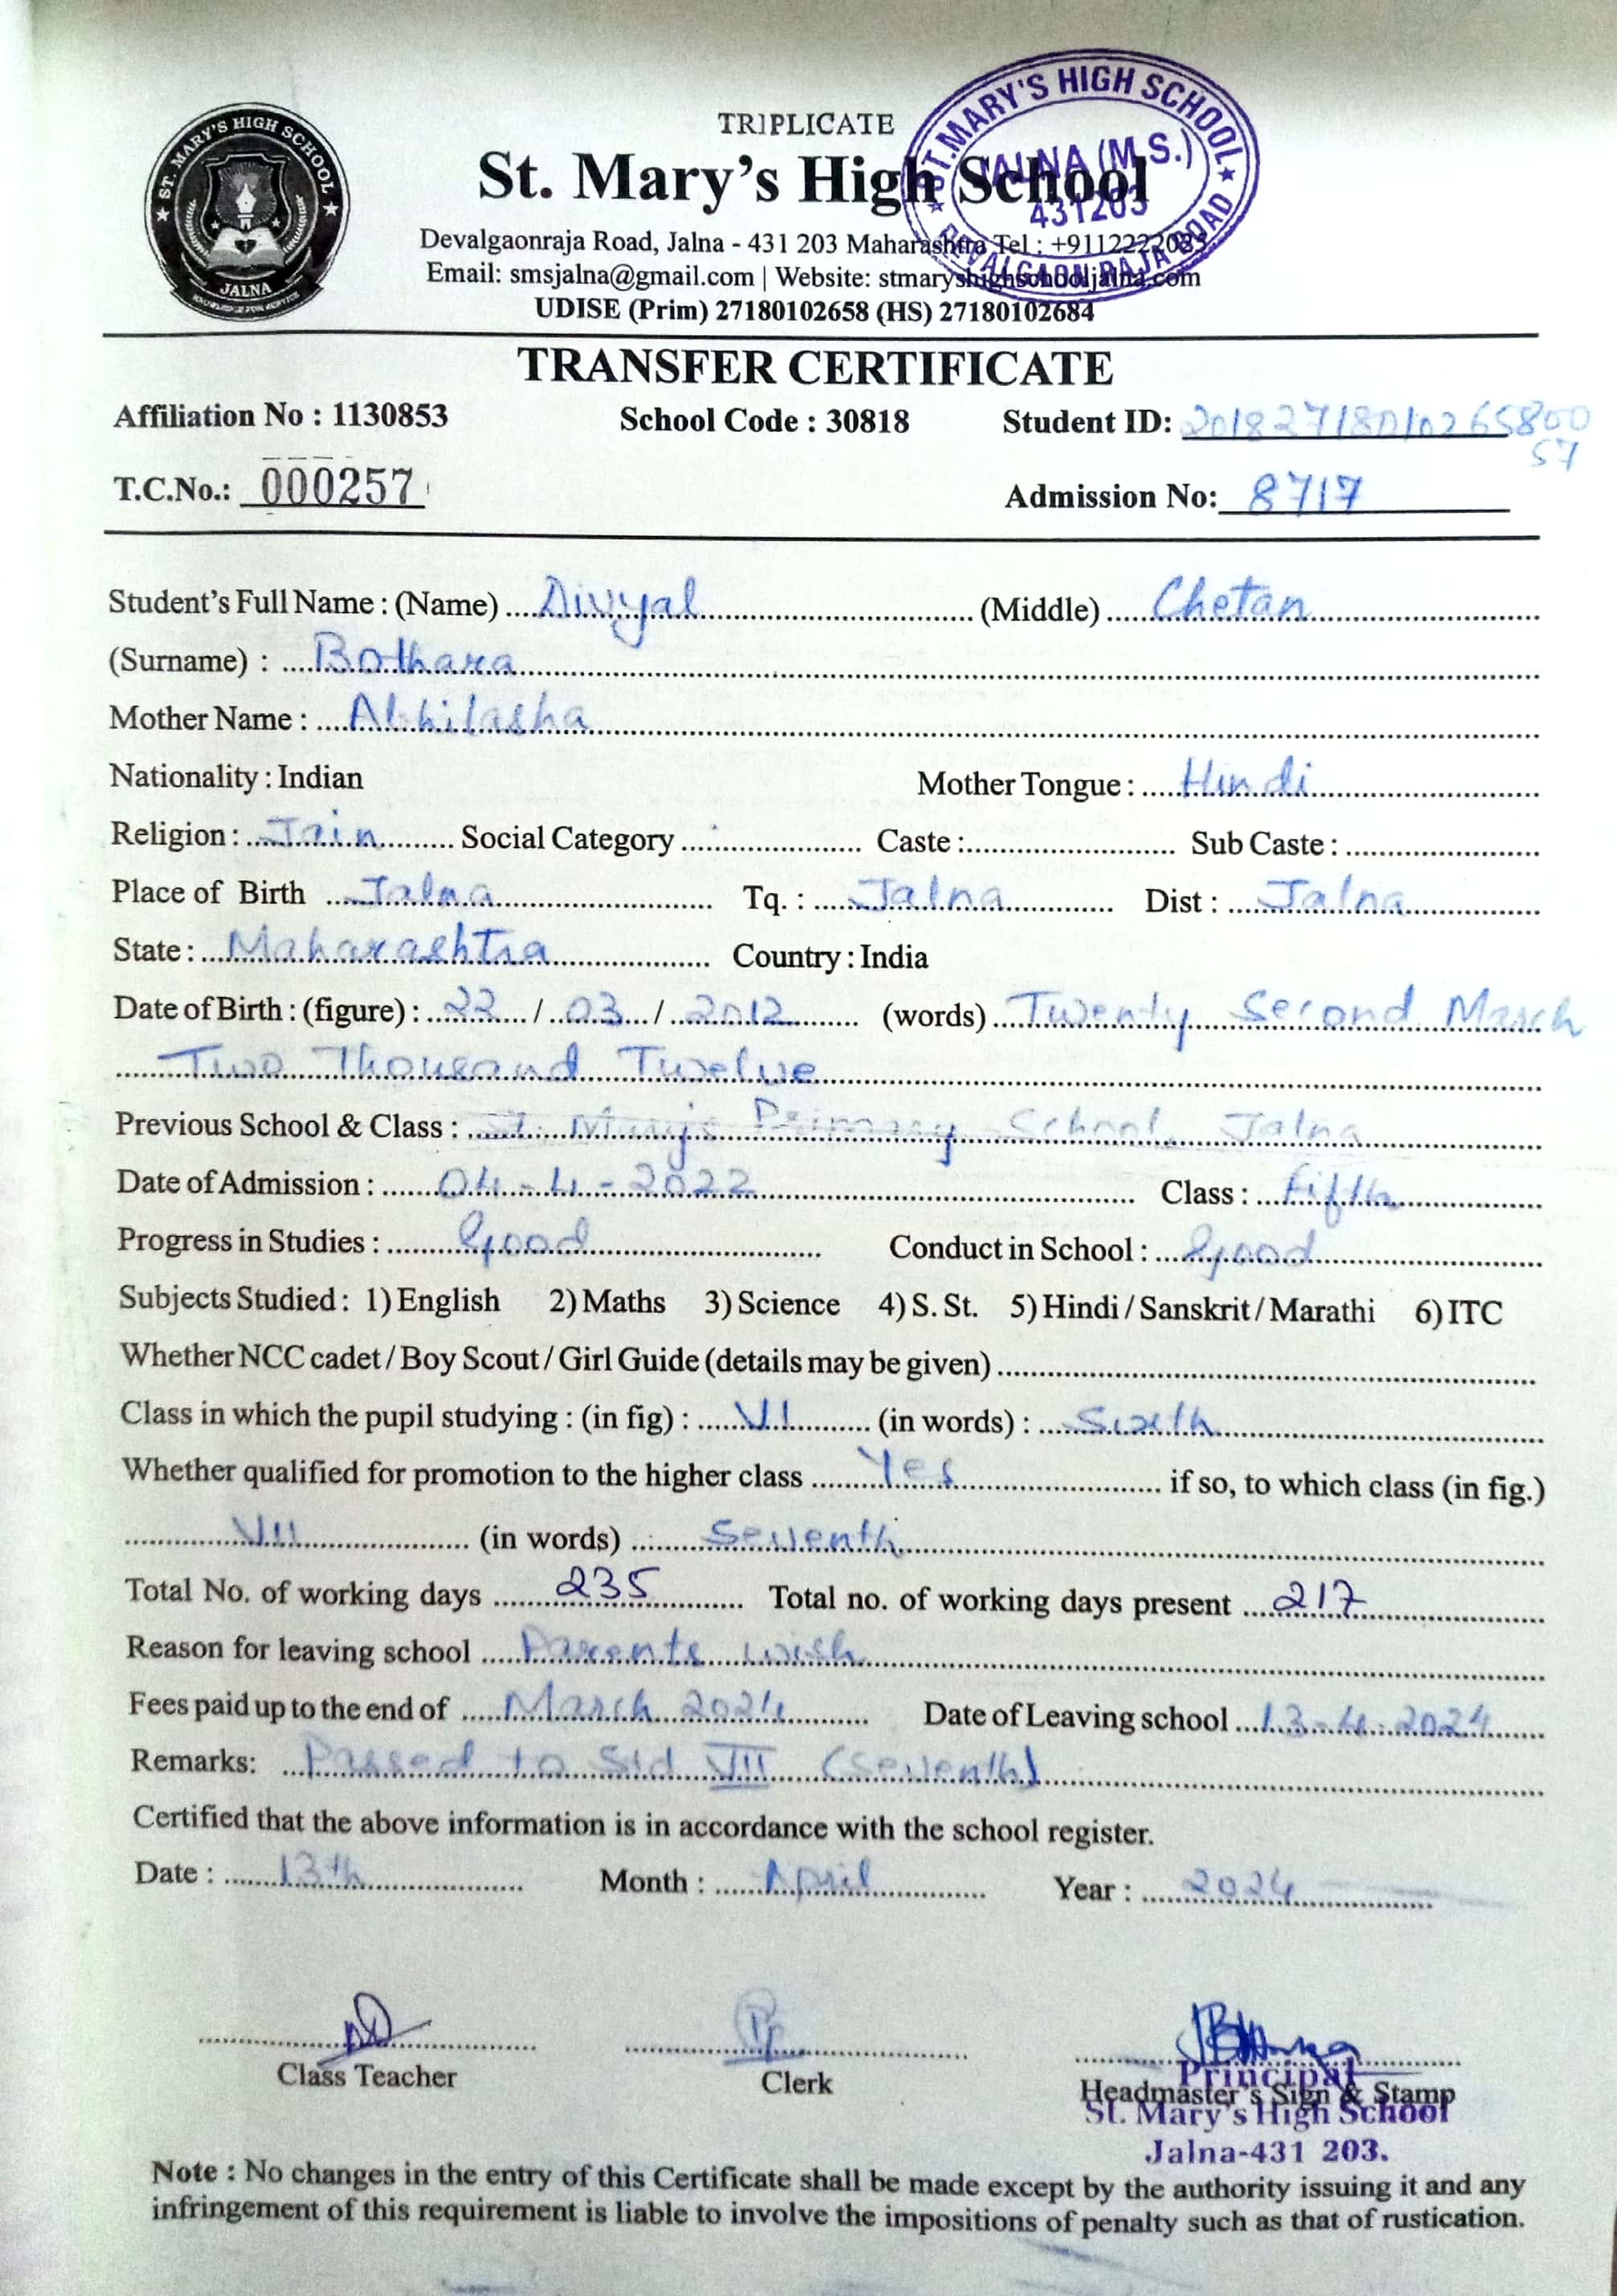 ST. MARY'S HIGH SCHOOL
JALNA
TRIPLICATE
St. Mary's High School
ST. MARY'S HIGH SCHOOL
JALNA (M.S.)
431203
DEVALGAON RAJA ROAD
Devalgaonraja Road, Jalna - 431 203 Maharashtra Tel : +9112222083
Email: smsjalna@gmail.com | Website: stmaryshighschooljalna.com
UDISE (Prim) 27180102658 (HS) 27180102684
TRANSFER CERTIFICATE
Affiliation No : 1130853 School Code : 30818 Student ID: 20182718010265800
57
T.C.No.: 000257 Admission No: 8717
Student's Full Name : (Name) Divyal (Middle) Chetan
(Surname) : Bothara
Mother Name : Abhilasha
Nationality : Indian Mother Tongue : Hindi
Religion : Jain Social Category Caste : Sub Caste :
Place of Birth Jalna Tq. : Jalna Dist : Jalna
State : Maharashtra Country : India
Date of Birth : (figure) : 22 / 03 / 2012 (words) Twenty Second March
Two Thousand Twelve
Previous School & Class : St. Mary's Primary School, Jalna
Date of Admission : 04-4-2022 Class : Fifth
Progress in Studies : Good Conduct in School : Good
Subjects Studied : 1) English 2) Maths 3) Science 4) S. St. 5) Hindi / Sanskrit / Marathi 6) ITC
Whether NCC cadet / Boy Scout / Girl Guide (details may be given)
Class in which the pupil studying : (in fig) : VI (in words) : Sixth
Whether qualified for promotion to the higher class Yes if so, to which class (in fig.)
VII (in words) Seventh
Total No. of working days 235 Total no. of working days present 217
Reason for leaving school Parents wish
Fees paid up to the end of March 2024 Date of Leaving school 13-4-2024
Remarks: Passed to Std VII (Seventh)
Certified that the above information is in accordance with the school register.
Date : 13th Month : April Year : 2024
Class Teacher Clerk Headmaster's Sign & Stamp
Principal
St. Mary's High School
Jalna-431 203.
Note : No changes in the entry of this Certificate shall be made except by the authority issuing it and any
infringement of this requirement is liable to involve the impositions of penalty such as that of rustication.